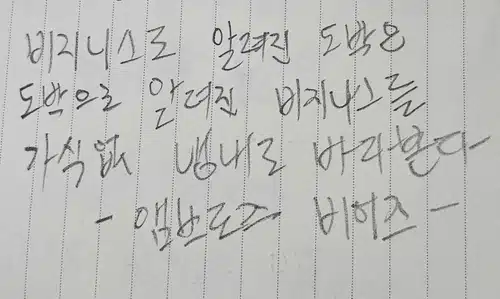 비지니스로 알려진 도박은
도박으로 알려진 비지니스를
가식없 냉내로 바라본다
- 앰브로즈 비어즈 -